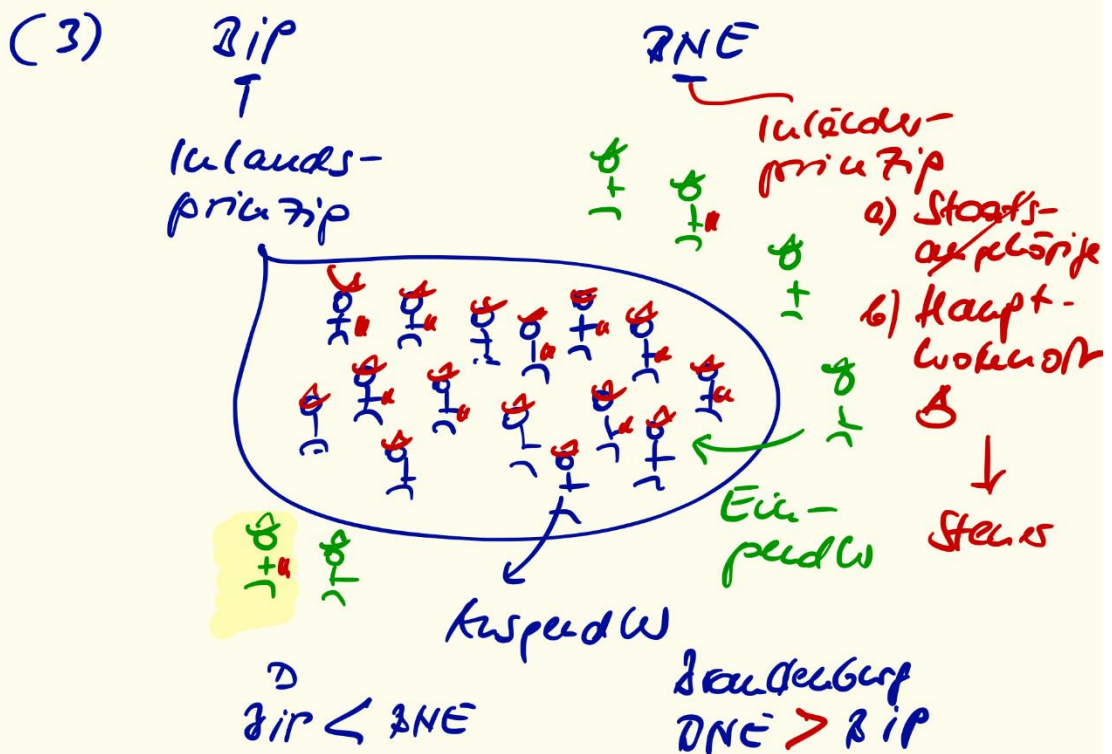 (3) BiP BNE
Inlands-
prinzip
Inländer-
prinzip
a) Staats-
angehörige
b) Haupt-
wohnort
Steuer
Ein-
pendler
Auspendler
D
BiP < BNE
Brandenburg
BNE > BiP